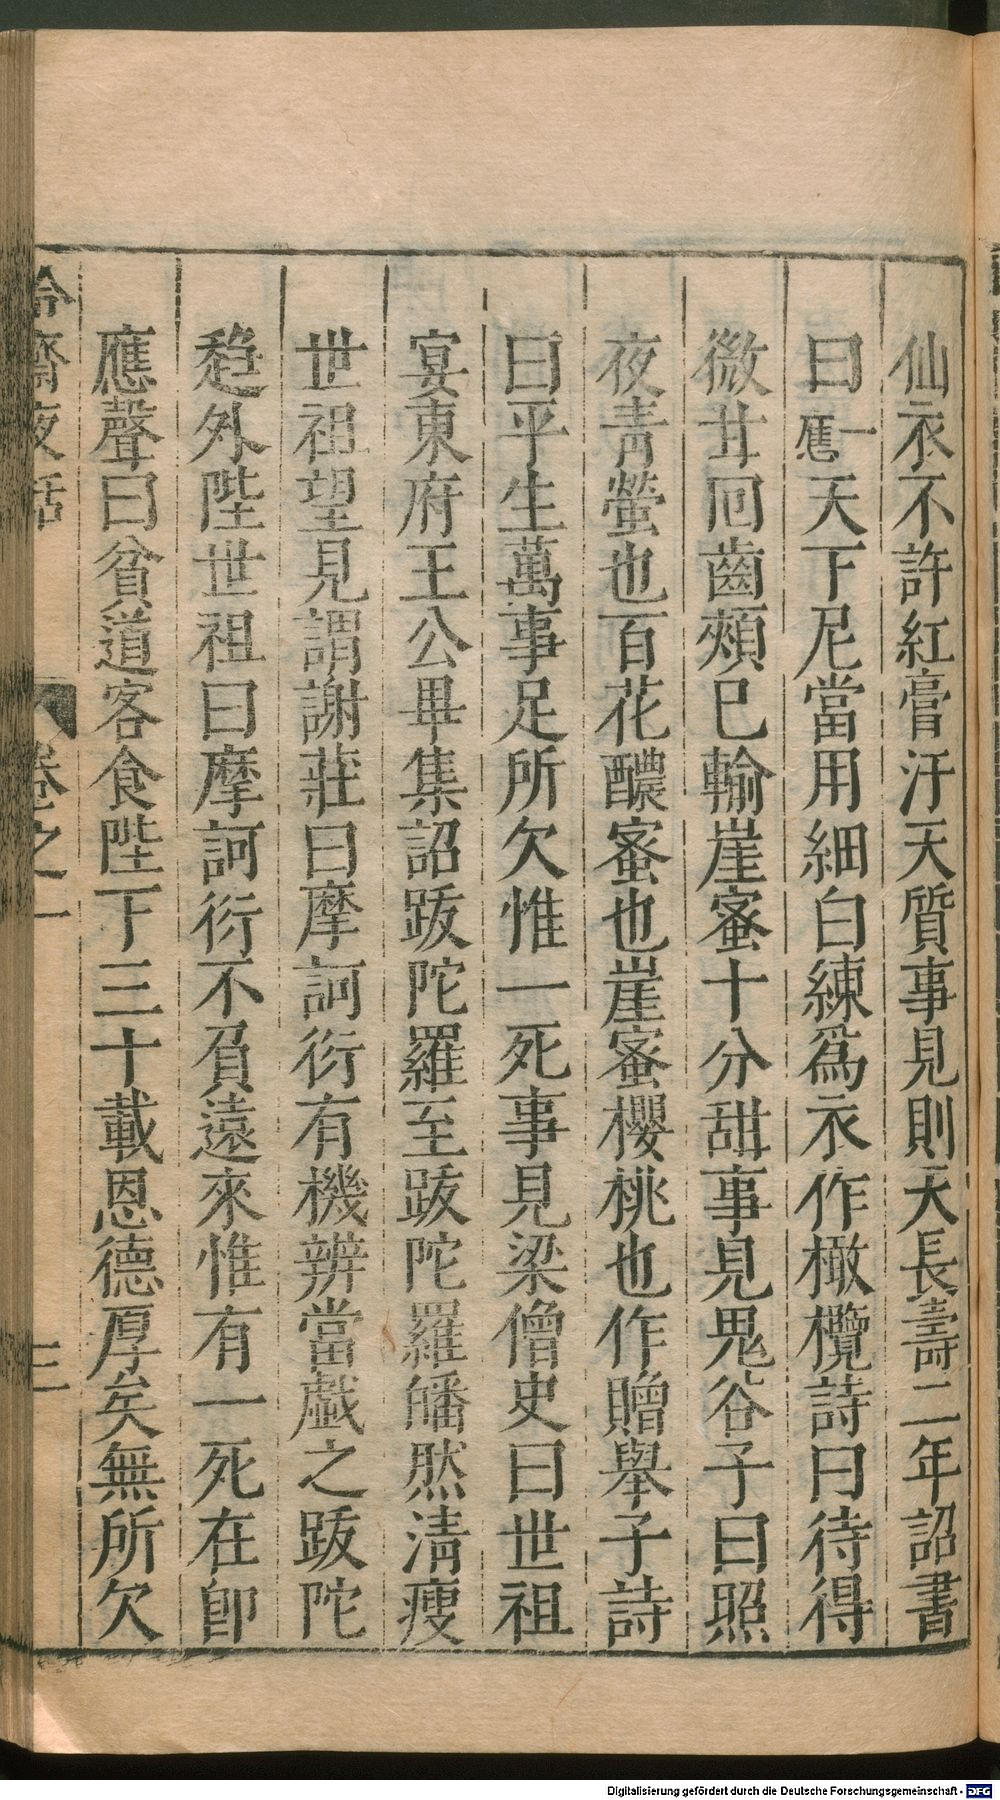 仙衣不許紅膏汙天質事見則天長壽二年詔書
曰應一天下尼當用細白練爲衣作橄欖詩曰待得
微甘囘齒頰已輸崖蜜十分甜事見鬼谷子曰照
夜青螢也百花醲蜜也崖蜜櫻桃也作贈舉子詩
曰平生萬事足所欠惟一死事見梁僧史曰世祖
宴東府王公畢集詔跋陀羅至跋陀羅皤然清瘦
世祖望見謂謝莊曰摩訶衍有機辨當戲之跋陀
趍外陛世祖曰摩訶衍不負遠來惟有一死在卽
應聲曰貧道客食陛下三十載恩德厚矣無所欠
冷齋夜話 卷之一 三
Digitalisierung gefördert durch die Deutsche Forschungsgemeinschaft - DFG